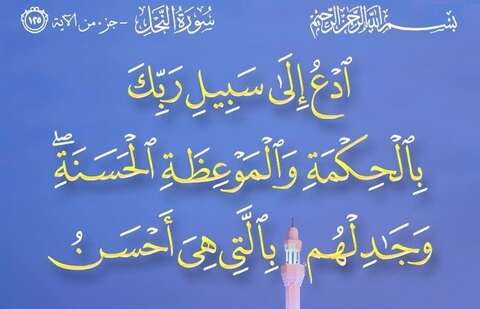 بِسْمِ ٱللَّهِ ٱلرَّحْمَٰنِ ٱلرَّحِيمِ سُورَةُ النَّحْلِ - جزء من الآية ١٢٥
ٱدْعُ إِلَىٰ سَبِيلِ رَبِّكَ
بِٱلْحِكْمَةِ وَٱلْمَوْعِظَةِ ٱلْحَسَنَةِۖ
وَجَٰدِلْهُم بِٱلَّتِى هِىَ أَحْسَنُ